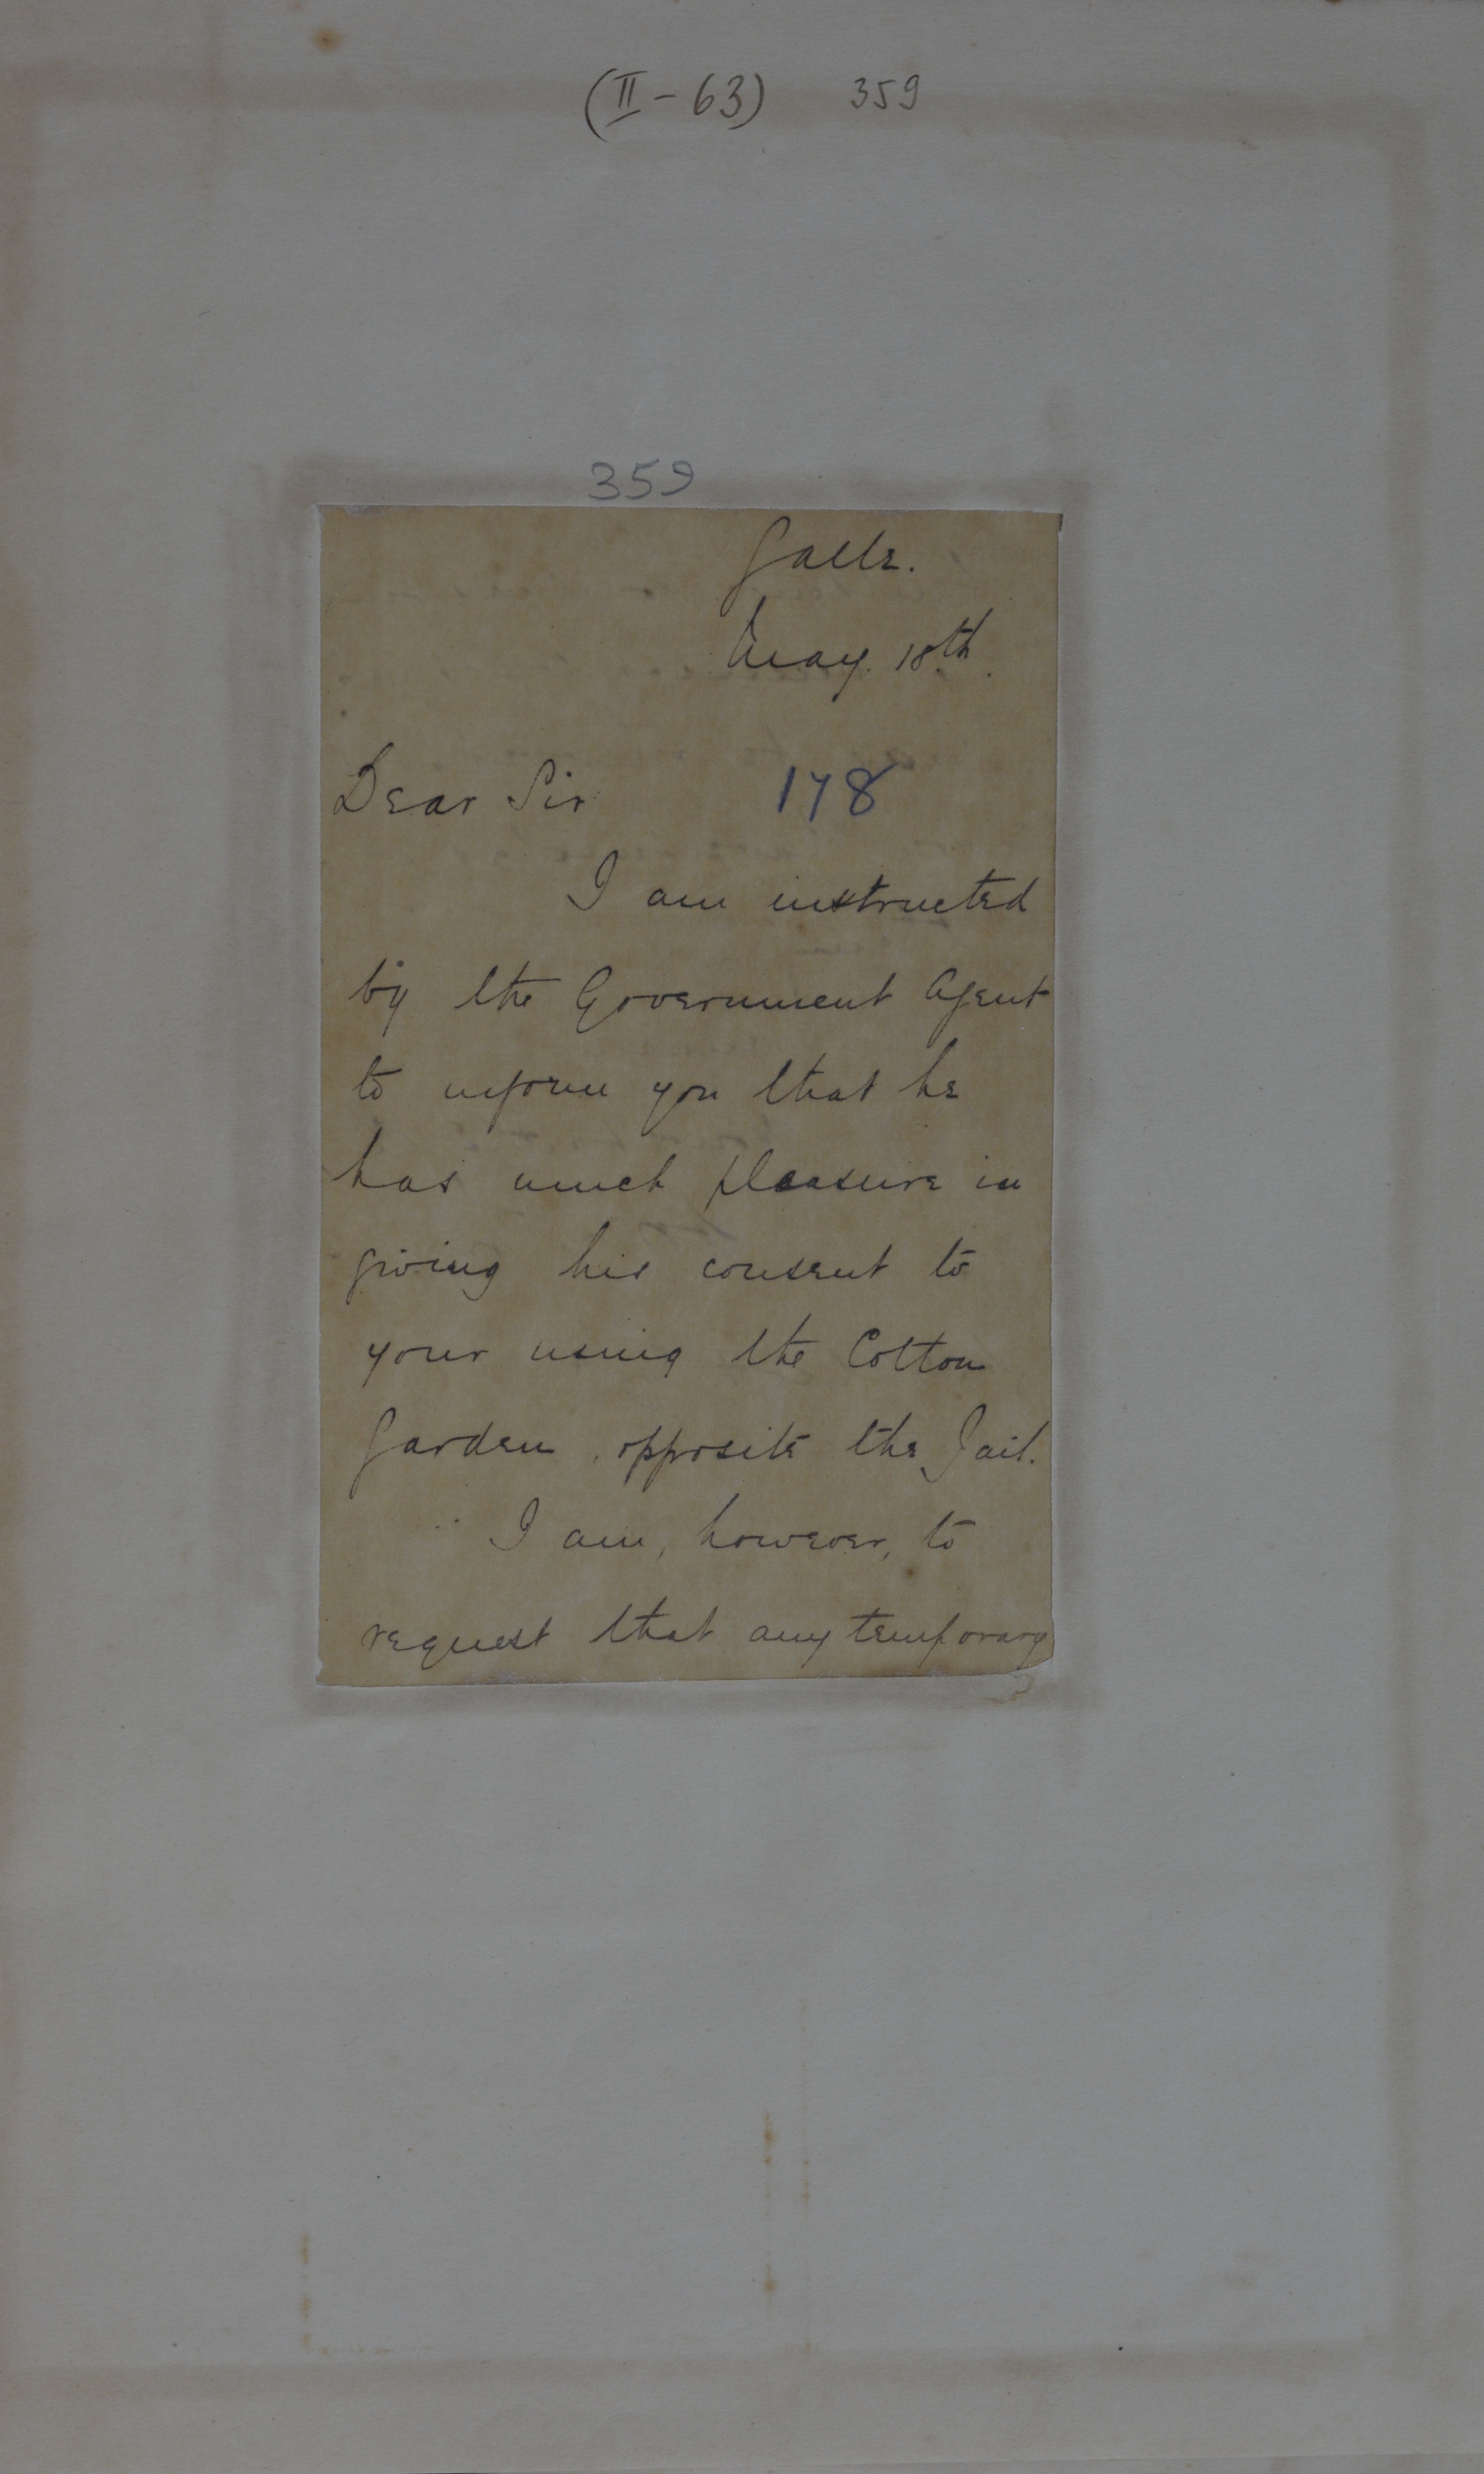 (II-63) 359
359
Galle.
May. 18th.
Dear Sir
178
I am instructed
by the Government Agent
to inform you that he
has much pleasure in
giving his consent to
your using the Cotton
Garden, opposite the Jail.
I am, however, to
request that any temporary